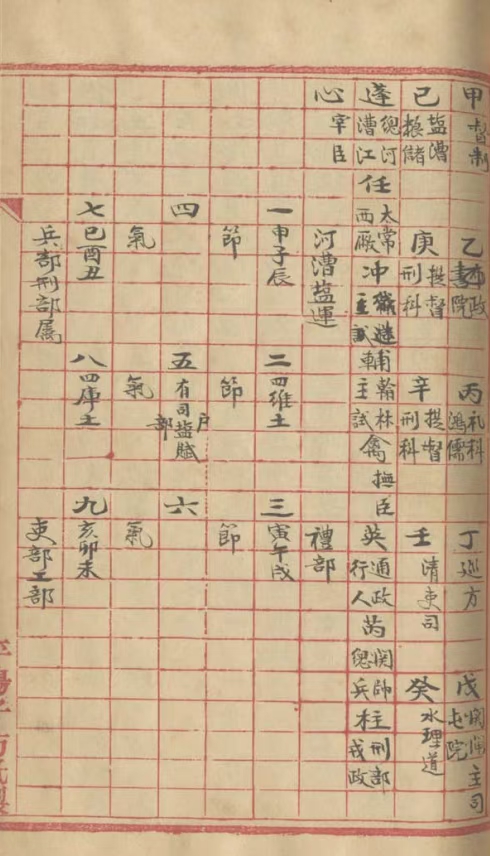 甲 督制 乙 布政 書院 丙 礼科 鴻儒 丁 巡方 戊 主司 屯院
己 塩漕 粮儲 庚 提督 刑科 辛 提督 刑科 壬 清吏司 癸 水理道
蓬 總河 漕江 任 太常 西廠 冲 主試 輔 翰林 主試 禽 撫臣 英 通政 行人 芮 関帥 總兵 柱 刑部 戎政
心 宰臣 河漕塩運 禮部
一 甲子辰 二 四維土 三 寅午戌
節 節 節
四 五 有司塩賦 户部 六
氣 氣 氣
七 巳酉丑 八 四庫土 九 亥卯未
兵部刑部属 吏部工部